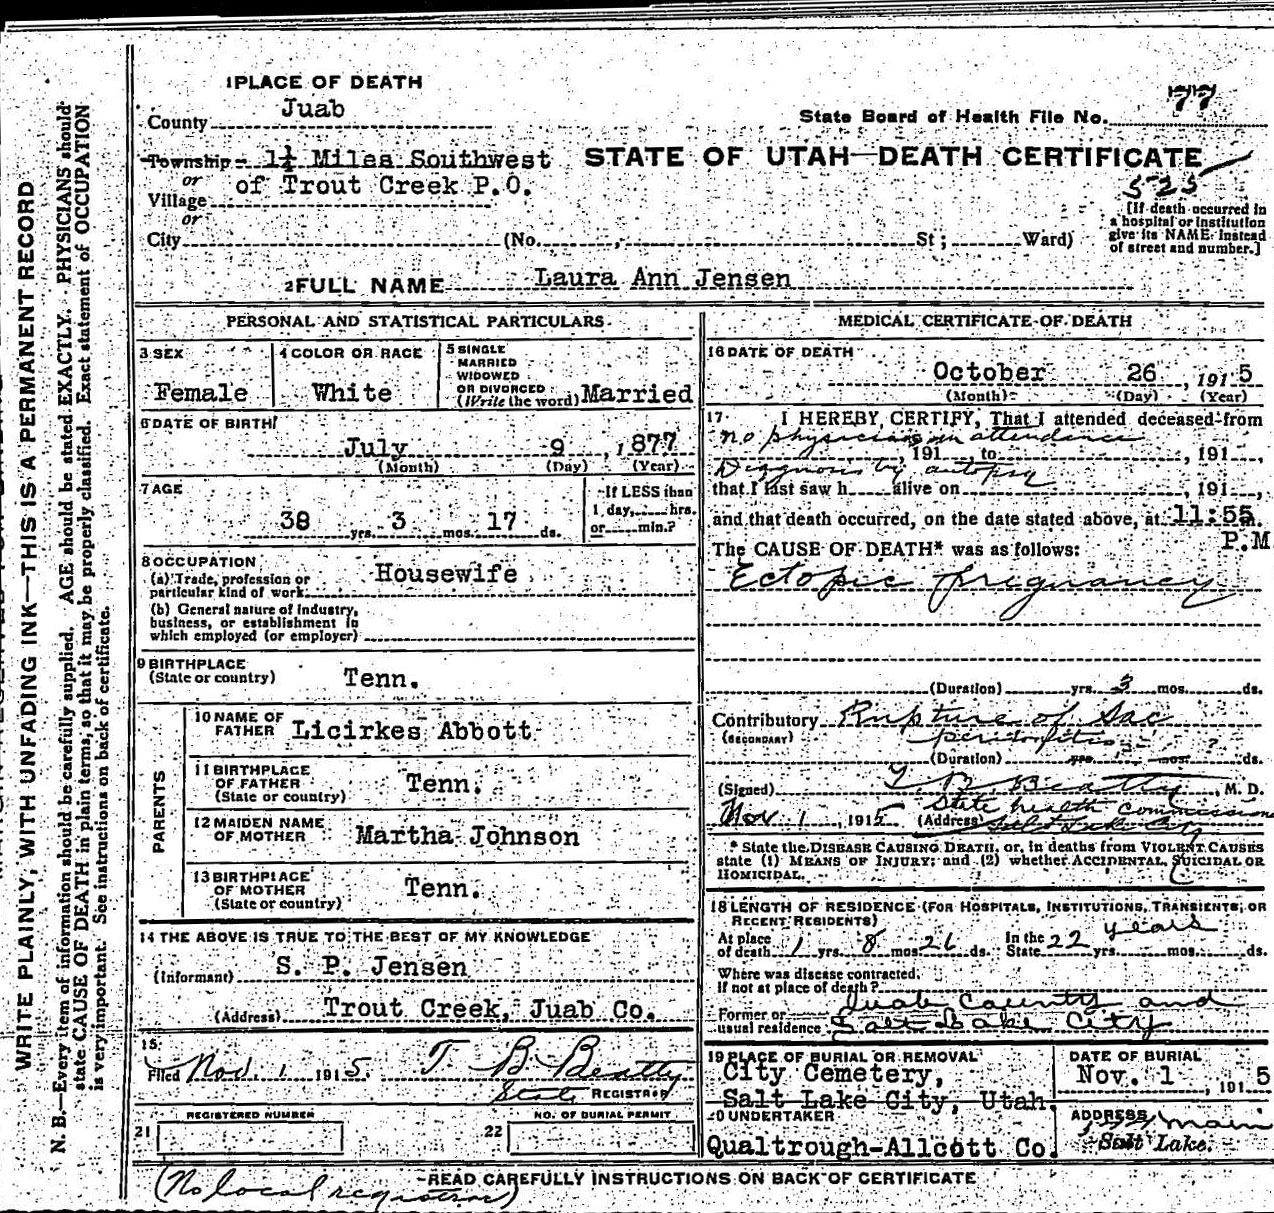 1 PLACE OF DEATH
County Juab
State Board of Health File No. 77
Township 1¼ Miles Southwest
or
Village of Trout Creek P.O.
or
STATE OF UTAH—DEATH CERTIFICATE
525
City (No. St; Ward)
[If death occurred in
a hospital or institution
give its NAME instead
of street and number.]
2 FULL NAME Laura Ann Jensen
PERSONAL AND STATISTICAL PARTICULARS
3 SEX
Female
4 COLOR OR RACE
White
5 SINGLE
MARRIED
WIDOWED
OR DIVORCED
(Write the word) Married
6 DATE OF BIRTH
July 9, 1877
(Month) (Day) (Year)
7 AGE
38 yrs. 3 mos. 17 ds.
If LESS than
1 day, hrs.
or min.?
8 OCCUPATION
(a) Trade, profession or
particular kind of work Housewife
(b) General nature of industry,
business, or establishment in
which employed (or employer)
9 BIRTHPLACE
(State or country) Tenn.
PARENTS
10 NAME OF
FATHER Licirkes Abbott
11 BIRTHPLACE
OF FATHER
(State or country) Tenn.
12 MAIDEN NAME
OF MOTHER Martha Johnson
13 BIRTHPLACE
OF MOTHER
(State or country) Tenn.
14 THE ABOVE IS TRUE TO THE BEST OF MY KNOWLEDGE
(Informant) S. P. Jensen
(Address) Trout Creek, Juab Co.
15
Filed Nov. 1 1915. T. B. Beatty
State REGISTRAR
REGISTERED NUMBER
21
NO. OF BURIAL PERMIT
22
MEDICAL CERTIFICATE OF DEATH
16 DATE OF DEATH
October 26, 1915
(Month) (Day) (Year)
17 I HEREBY CERTIFY, That I attended deceased from
no physician in attendance
, 191 , to , 191 ,
Diagnosis by autopsy
that I last saw h alive on , 191 ,
and that death occurred, on the date stated above, at 11:55 m.
P.M
The CAUSE OF DEATH* was as follows:
Ectopic pregnancy
(Duration) yrs. 3 mos. ds.
Contributory Rupture of Sac
(SECONDARY) peritonitis
(Duration) yrs. mos. ? ds.
(Signed) T. B. Beatty, M. D.
State health commissioner
Nov 1, 1915 (Address) Salt Lake City
* State the DISEASE CAUSING DEATH, or, in deaths from VIOLENT CAUSES
state (1) MEANS OF INJURY; and (2) whether ACCIDENTAL, SUICIDAL OR
HOMICIDAL.
18 LENGTH OF RESIDENCE (FOR HOSPITALS, INSTITUTIONS, TRANSIENTS, OR
RECENT RESIDENTS)
At place
of death 1 yrs. 8 mos. 26 ds. In the
State 22 years yrs. mos. ds.
Where was disease contracted,
if not at place of death?
Former or
usual residence Juab County and
Salt Lake City
19 PLACE OF BURIAL OR REMOVAL
City Cemetery,
Salt Lake City, Utah.
DATE OF BURIAL
Nov. 1, 1915
20 UNDERTAKER
Qualtrough-Allcott Co.
ADDRESS
Main
Salt Lake.
READ CAREFULLY INSTRUCTIONS ON BACK OF CERTIFICATE
(No local registrar)
WRITE PLAINLY, WITH UNFADING INK—THIS IS A PERMANENT RECORD
N. B.—Every item of information should be carefully supplied. AGE should be stated EXACTLY. PHYSICIANS should
state CAUSE OF DEATH in plain terms, so that it may be properly classified. Exact statement of OCCUPATION
is very important. See instructions on back of certificate.